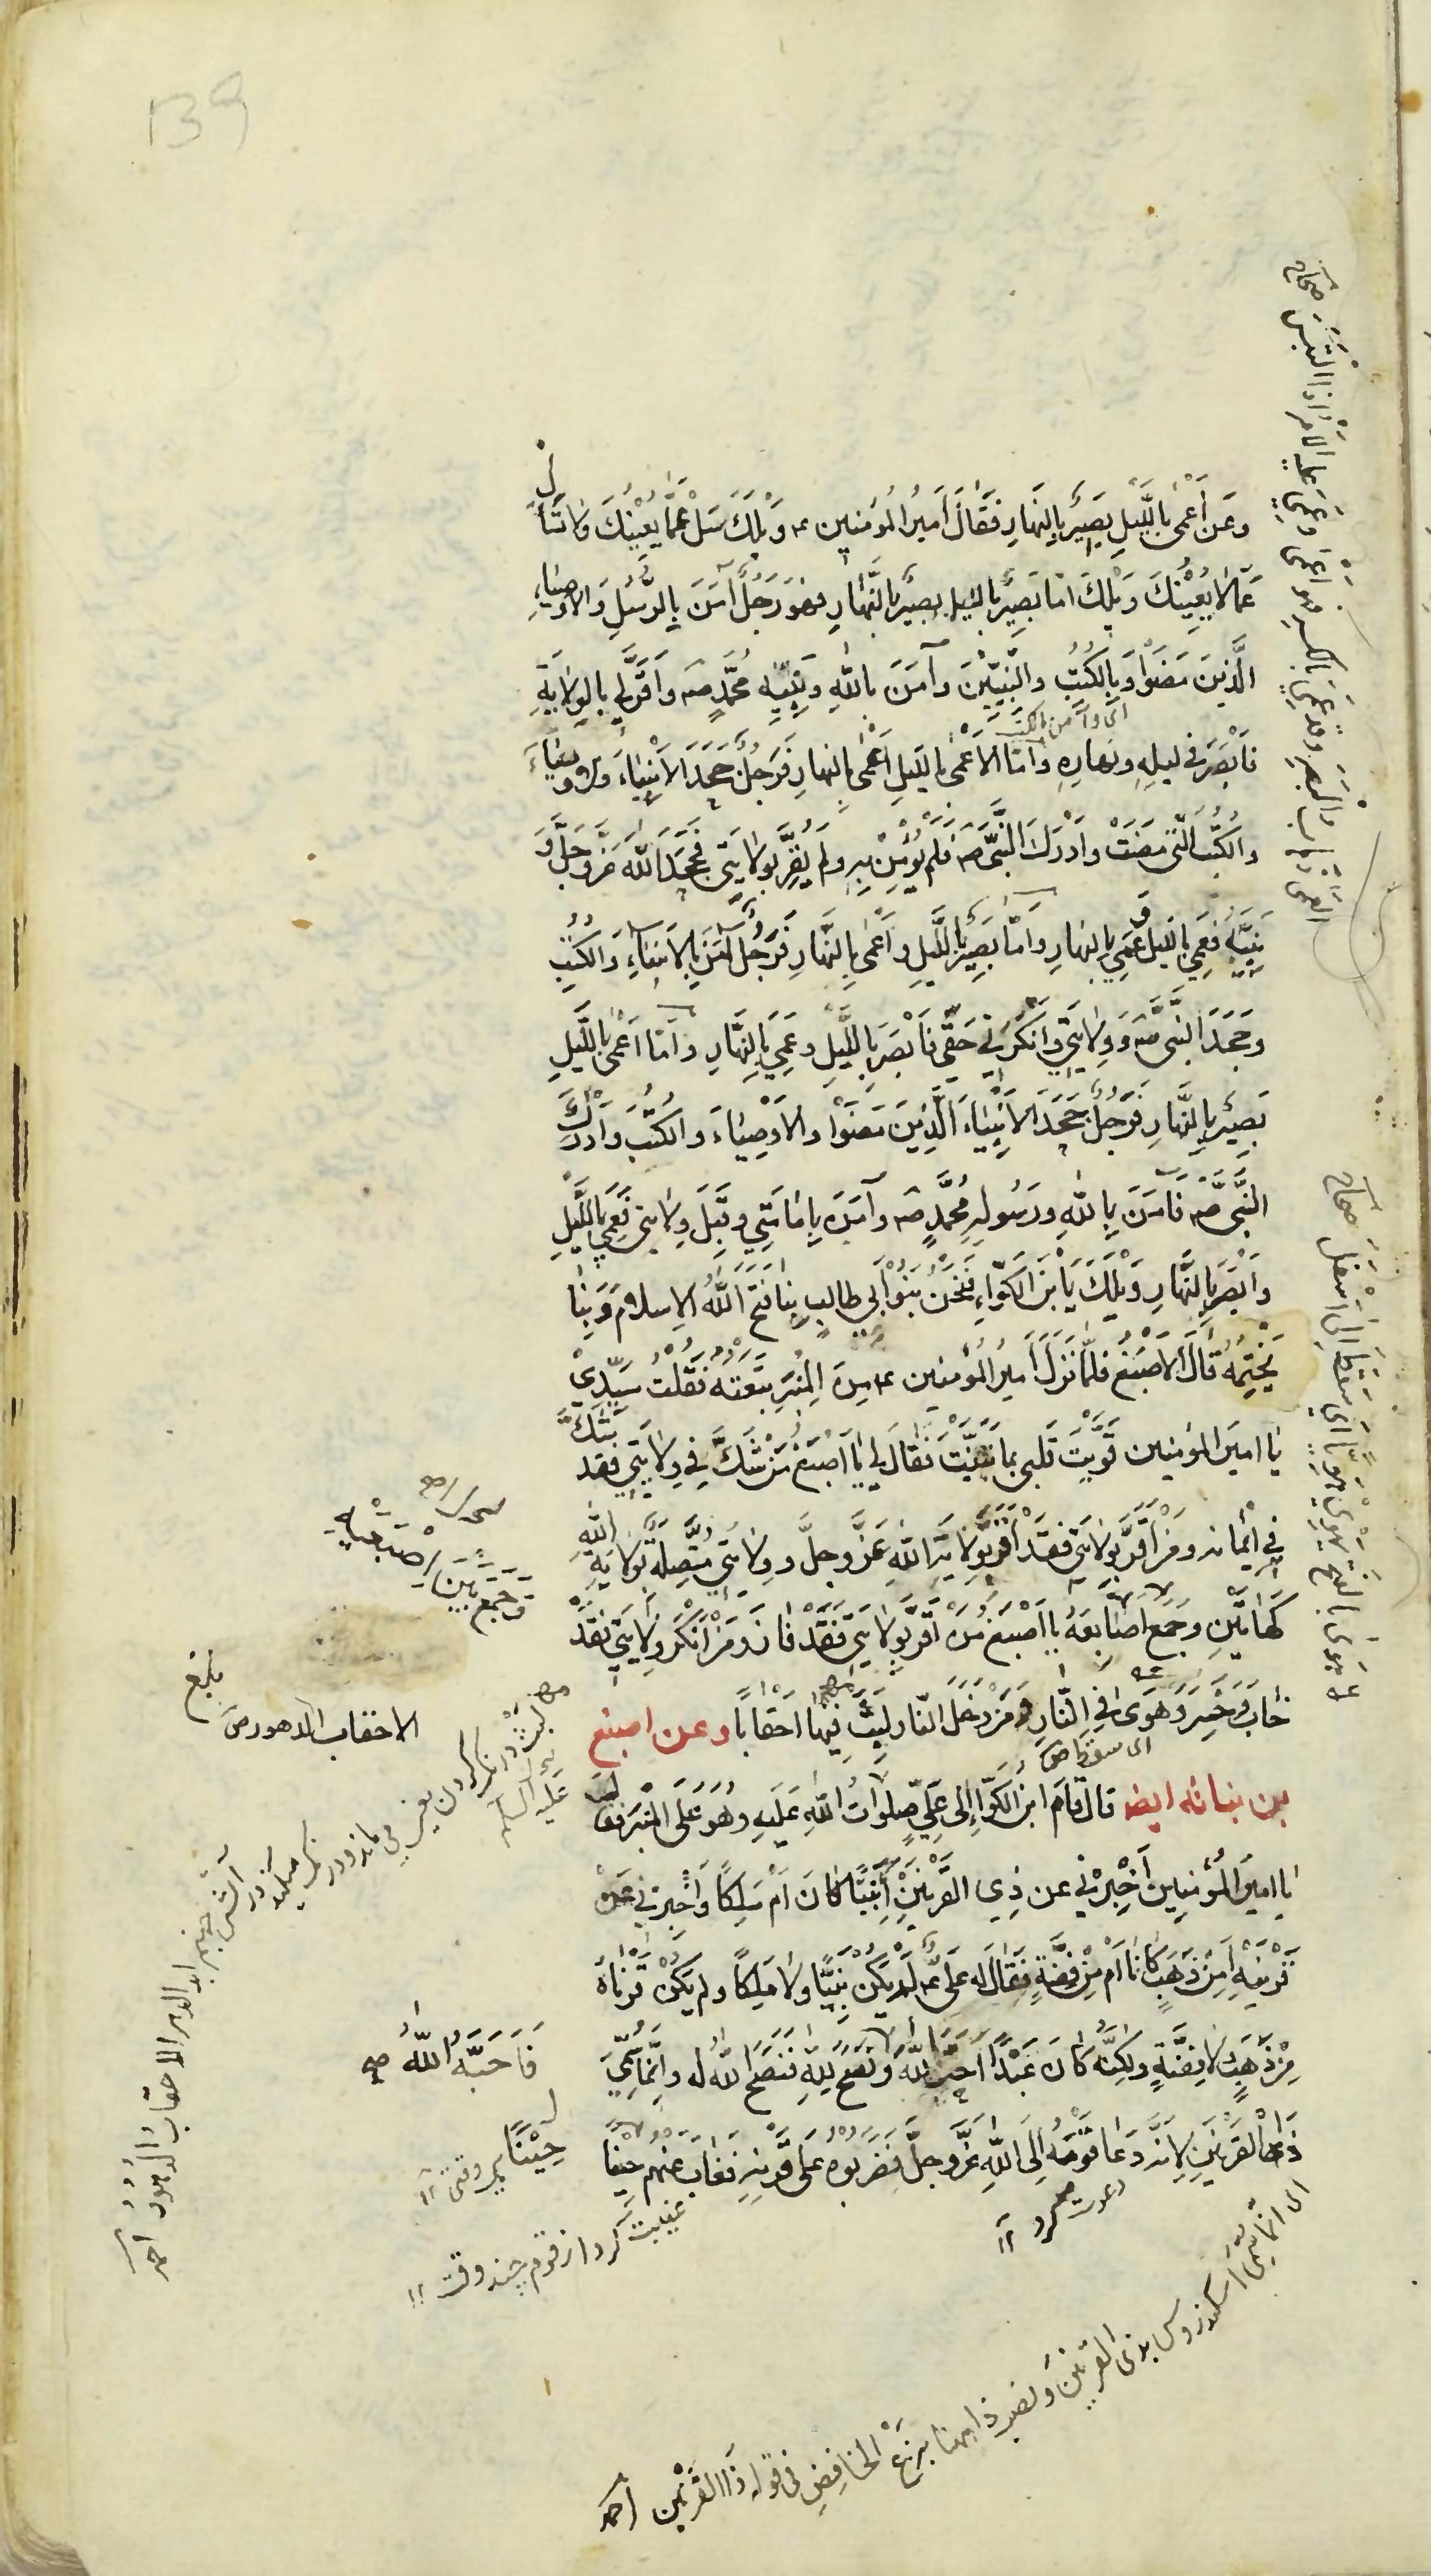 139
وعَن أعْمٰى بِاللَّيلِ بَصِيْرٍ بِالنَّهارِ فَقَالَ أمِيرُ المُؤمنين ع وَيْلَكَ سَلْ عَمَّا يَعْنِيْكَ ولا تَسْأَل
عَمَّا لا يَعْنِيْكَ وَيْلَكَ أمّا بَصِيْرٌ بِاللَّيلِ بَصِيْرٌ بِالنَّهَارِ فهُوَ رَجُلٌ آمَنَ بِالرُّسُلِ وَالأوْصِيَاءِ
الَّذينَ مَضَوْا وَبِالكُتُبِ والنَّبِيِّيْنَ وآمَنَ بِاللهِ ونَبِيِّهِ مُحَمَّدٍ ص وأقَرَّ لِي بِالوِلايَةِ
فَأبْصَرَ في لَيلِهِ ونَهارِهِ وأمّا الأعْمٰى بِاللَّيلِ أعْمٰى بِالنَّهارِ فَرَجُلٌ جَحَدَ الأنْبِيَاءَ والأوصِيَاءَ
والكُتُبَ الّتي مَضَتْ وأدْرَكَ النَّبِيَّ ص فَلَمْ يُؤْمِنْ بِهِ ولَمْ يُقِرَّ بِوِلايَتِي فَجَحَدَ اللهَ عَزَّ وجَلَّ وَ
نَبِيَّهُ فعَمِيَ بِاللَّيلِ وعَمِيَ بِالنَّهارِ وأمّا بَصِيْرٌ بِاللَّيلِ وأعْمٰى بِالنَّهَارِ فَرَجُلٌ آمَنَ بِالأنبيَاءِ والكُتُبِ
وجَحَدَ النَّبِيَّ ص وَوِلايَتِي وأنكَرَنِي حَقِّي فَأبْصَرَ بِاللَّيلِ وعَمِيَ بِالنَّهَارِ وأمّا أعْمٰى بِاللَّيلِ
بَصِيْرٌ بِالنَّهارِ فَرَجُلٌ جَحَدَ الأنْبِيَاءَ الَّذِيْنَ مَضَوْا والأوْصِيَاءَ والكُتُبَ وأدْرَكَ
النَّبِيَّ ص فَآمَنَ بِاللهِ ورَسُولِهِ مُحَمَّدٍ ص وآمَنَ بِإمَامَتِي وقَبِلَ وِلايَتِي فَعَمِيَ بِاللَّيلِ
وأبْصَرَ بِالنَّهَارِ وَيْلَكَ يَا بْنَ الكَوّاءِ فَنَحْنُ بَنُو أبِي طالِبٍ بِنَا فَتَحَ اللهُ الإسلامَ وَبِنَا
يَخْتِمُهُ قَالَ الأصْبَغُ فلَمّا نَزَلَ أمِيرُ المُؤمنين ع مِنَ المِنْبَرِ تَبِعْتُهُ فَقُلتُ سَيِّدِي
يَا امِيرَ المُؤمِنين قَوَّيْتَ قَلبِي بما بَيَّنْتَ فَقَالَ لِي يَا أصْبَغُ مَنْ شَكَّ فِي وِلايَتِي فقد شَكَّ
فِي ايْمَانِهِ ومَنْ أقَرَّ بِوِلايَتِي فقَدْ أقَرَّ بِوِلايَةِ اللهِ عَزَّ وجلَّ ووِلايَتِي مُتَّصِلَةٌ بِوِلايَةِ اللهِ
كَهَاتَيْنِ وجَمَعَ أصَابِعَهُ يا أصْبَغُ مَنْ أقَرَّ بِوِلايَتِي فَقَدْ فَازَ ومَنْ أنكَرَ وِلايَتِي فقَدْ
خَابَ وخَسِرَ وهَوىٰ فِي النَّارِ ومَنْ دَخَلَ النّارَ لَبِثَ فِيهَا أحْقَابًا وعن اصبغ
بن نباتة ايضا قال قَامَ ابنُ الكَوّاءِ إلى عَلِيٍّ صَلَوَاتُ اللهِ عَلَيهِ وهُوَ عَلَى المِنْبَرِ فقَالَ
يا امِيرَ المُؤمِنِين أخْبِرْنِي عن ذِي القَرْنَيْنِ أنَبِيًّا كانَ أمْ مَلِكًا وأخْبِرْنِي عَنْ
قَرْنَيْهِ أمِنْ ذَهَبٍ كَانَا أمْ مِنْ فِضَّةٍ فَقَالَ له عَلِيٌّ ع لَمْ يَكُنْ نَبِيًّا ولا مَلِكًا ولم يَكُنْ قَرْنَاهُ
مِنْ ذَهَبٍ ولا فِضَّةٍ ولكِنَّهُ كَانَ عَبْدًا أحَبَّ اللهَ ونَصَحَ لِلّهِ فَنَصَحَ اللهُ له وإنَّمَا سُمِّيَ
ذَا القَرْنَيْنِ لأنَّهُ دَعَا قَوْمَهُ إلَى اللهِ عَزَّ وجلَّ فَضَرَبُوهُ عَلَى قَرْنِهِ فَغَابَ عَنْهُم حِيْنًا
اى وآمن بالكتب
اى سقط ص
الاحقاب الدهور ص
وَجَمَعَ بَيْنَ إصْبَعَيْهِ
فَأحَبَّهُ اللهُ ص
حِيْنًا
غيبت كرد از قوم چند وقت ۱۲
دعوت كرد ۱۲
اى انما سمّى اسكندروس بذى القرنين ونصب ذا ههنا بنزع الخافض فى قوله ذا القرنين